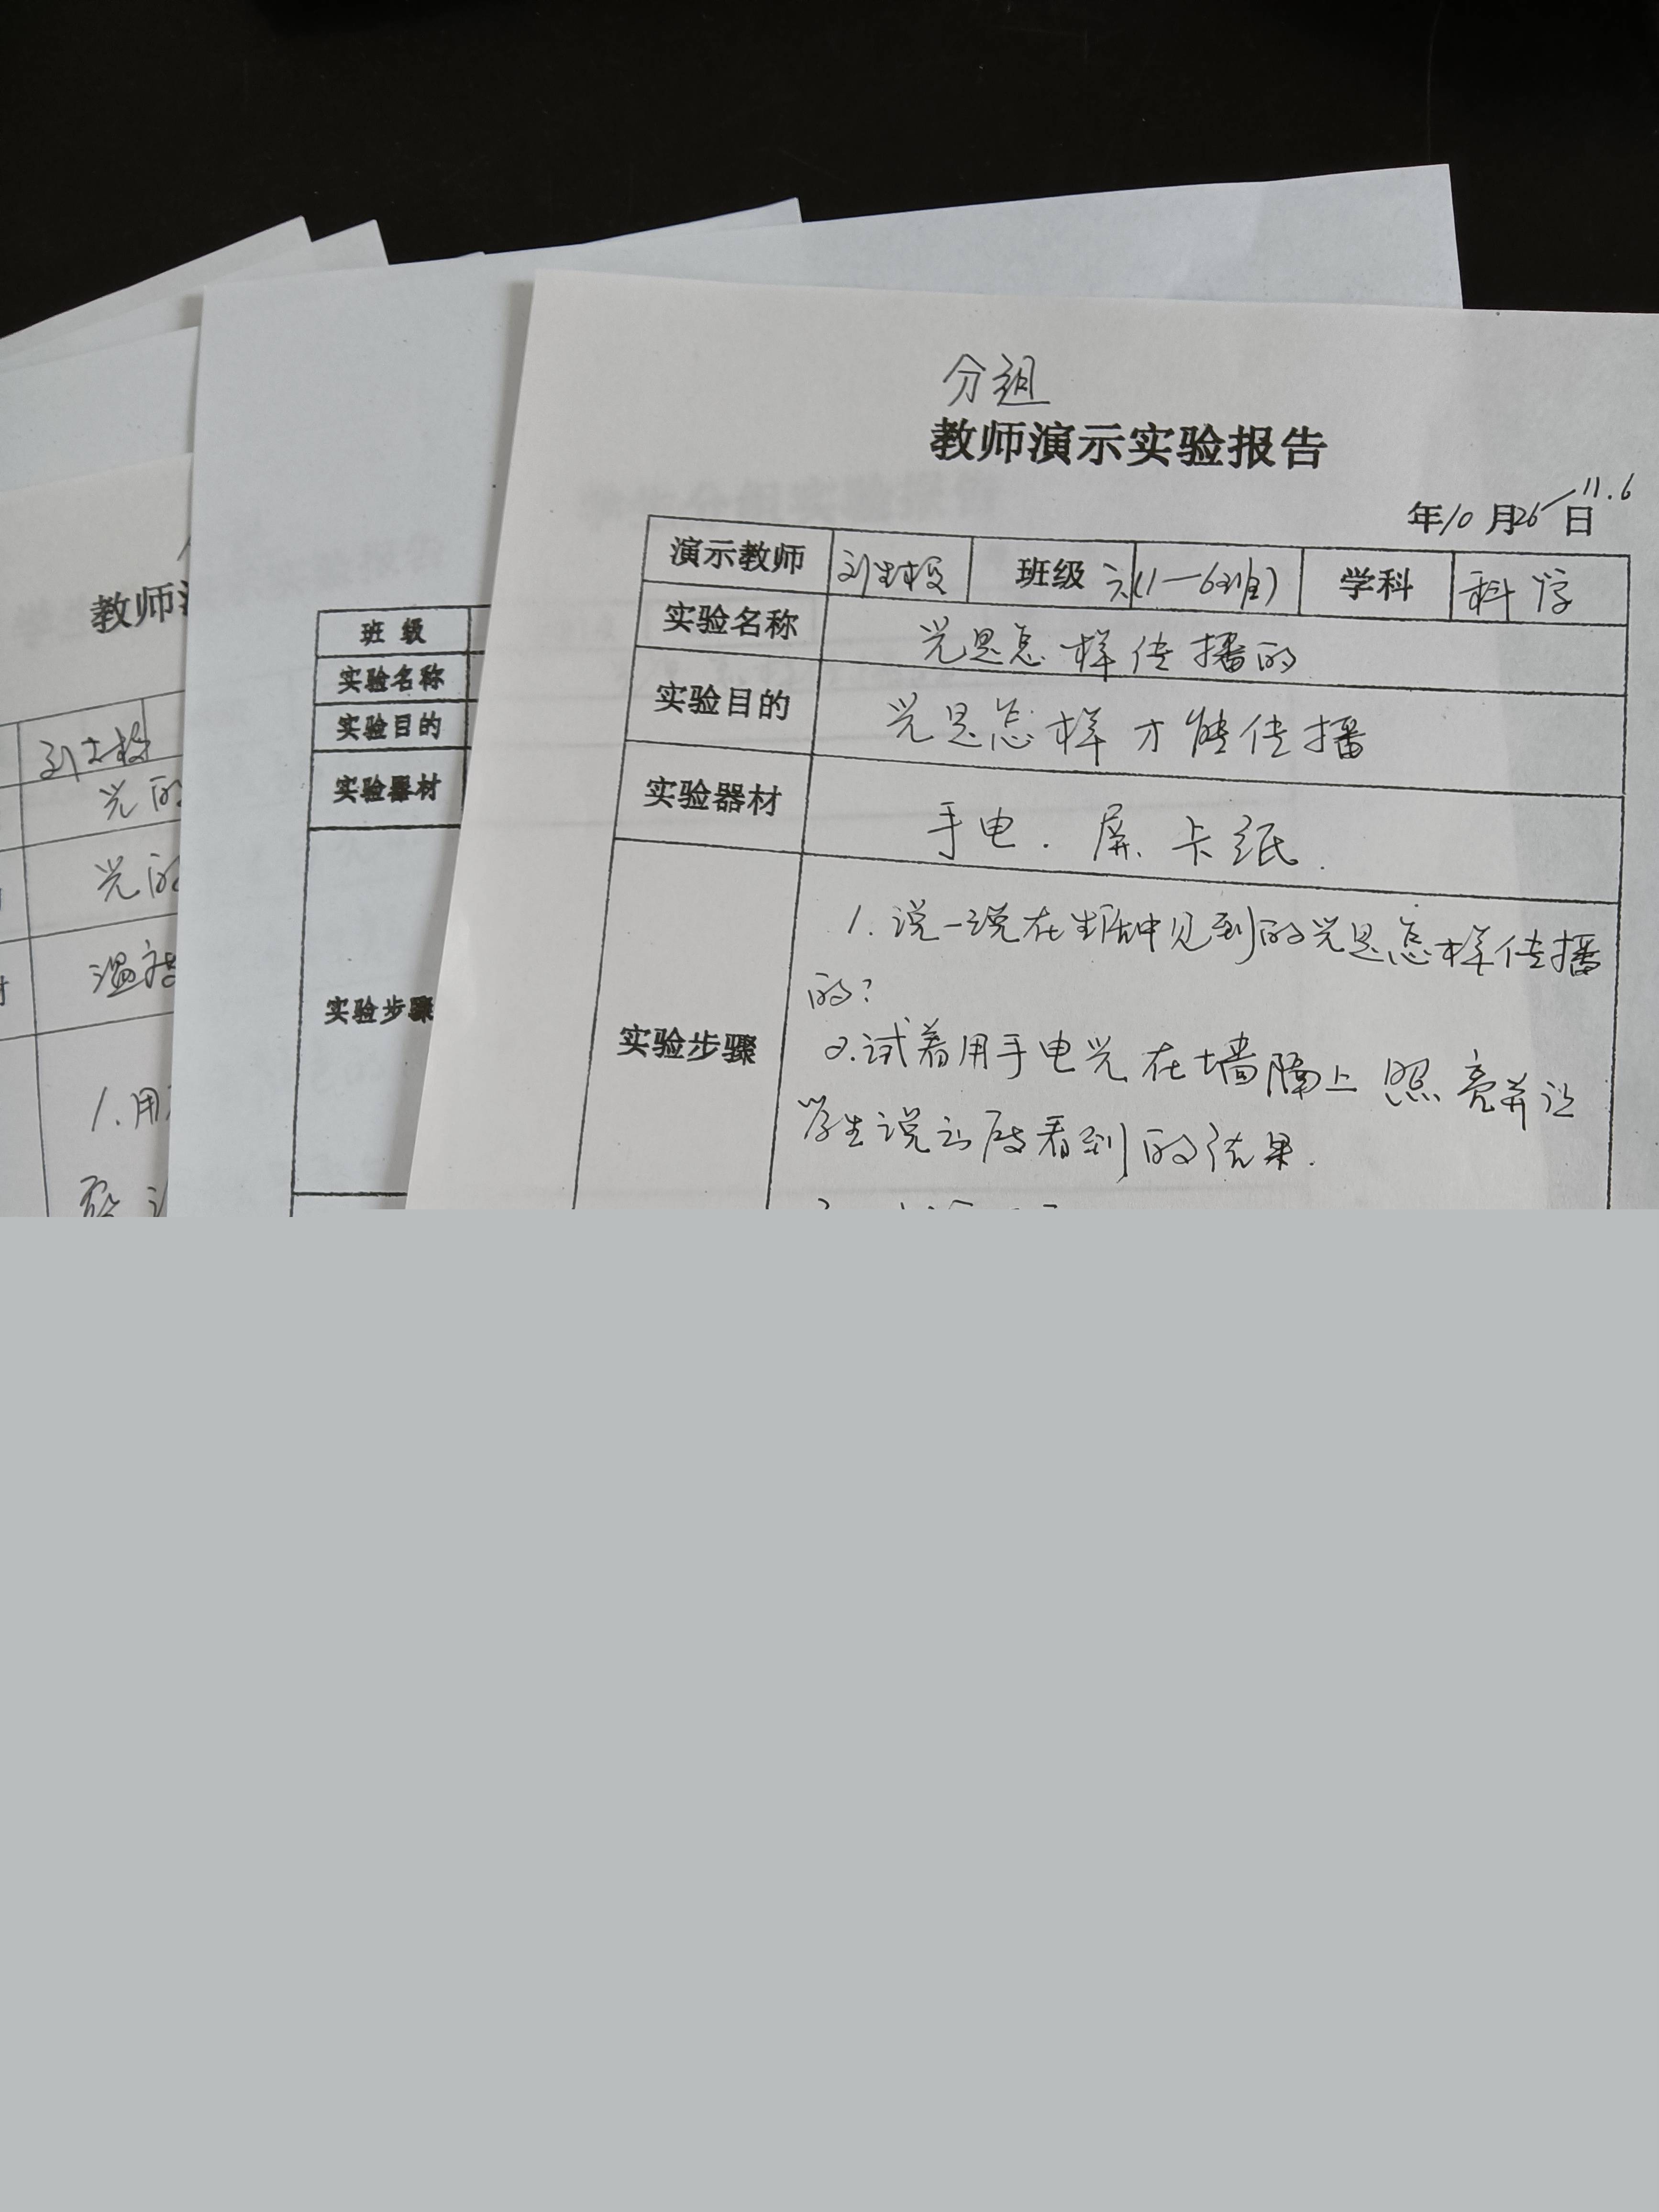 分组
教师演示实验报告
年10月26日—11.6
演示教师 班级 六(1—6班) 学科 科学
实验名称 光是怎样传播的
实验目的 光是怎样才能传播
实验器材 手电.屏.卡纸.
实验步骤
1.说一说在生活中见到的光是怎样传播
的?
2.试着用手电光在墙隔上照亮并让
学生说看到的结果.
班级
实验名称
实验目的
实验器材
实验步骤
教师
光的
光的
1.用